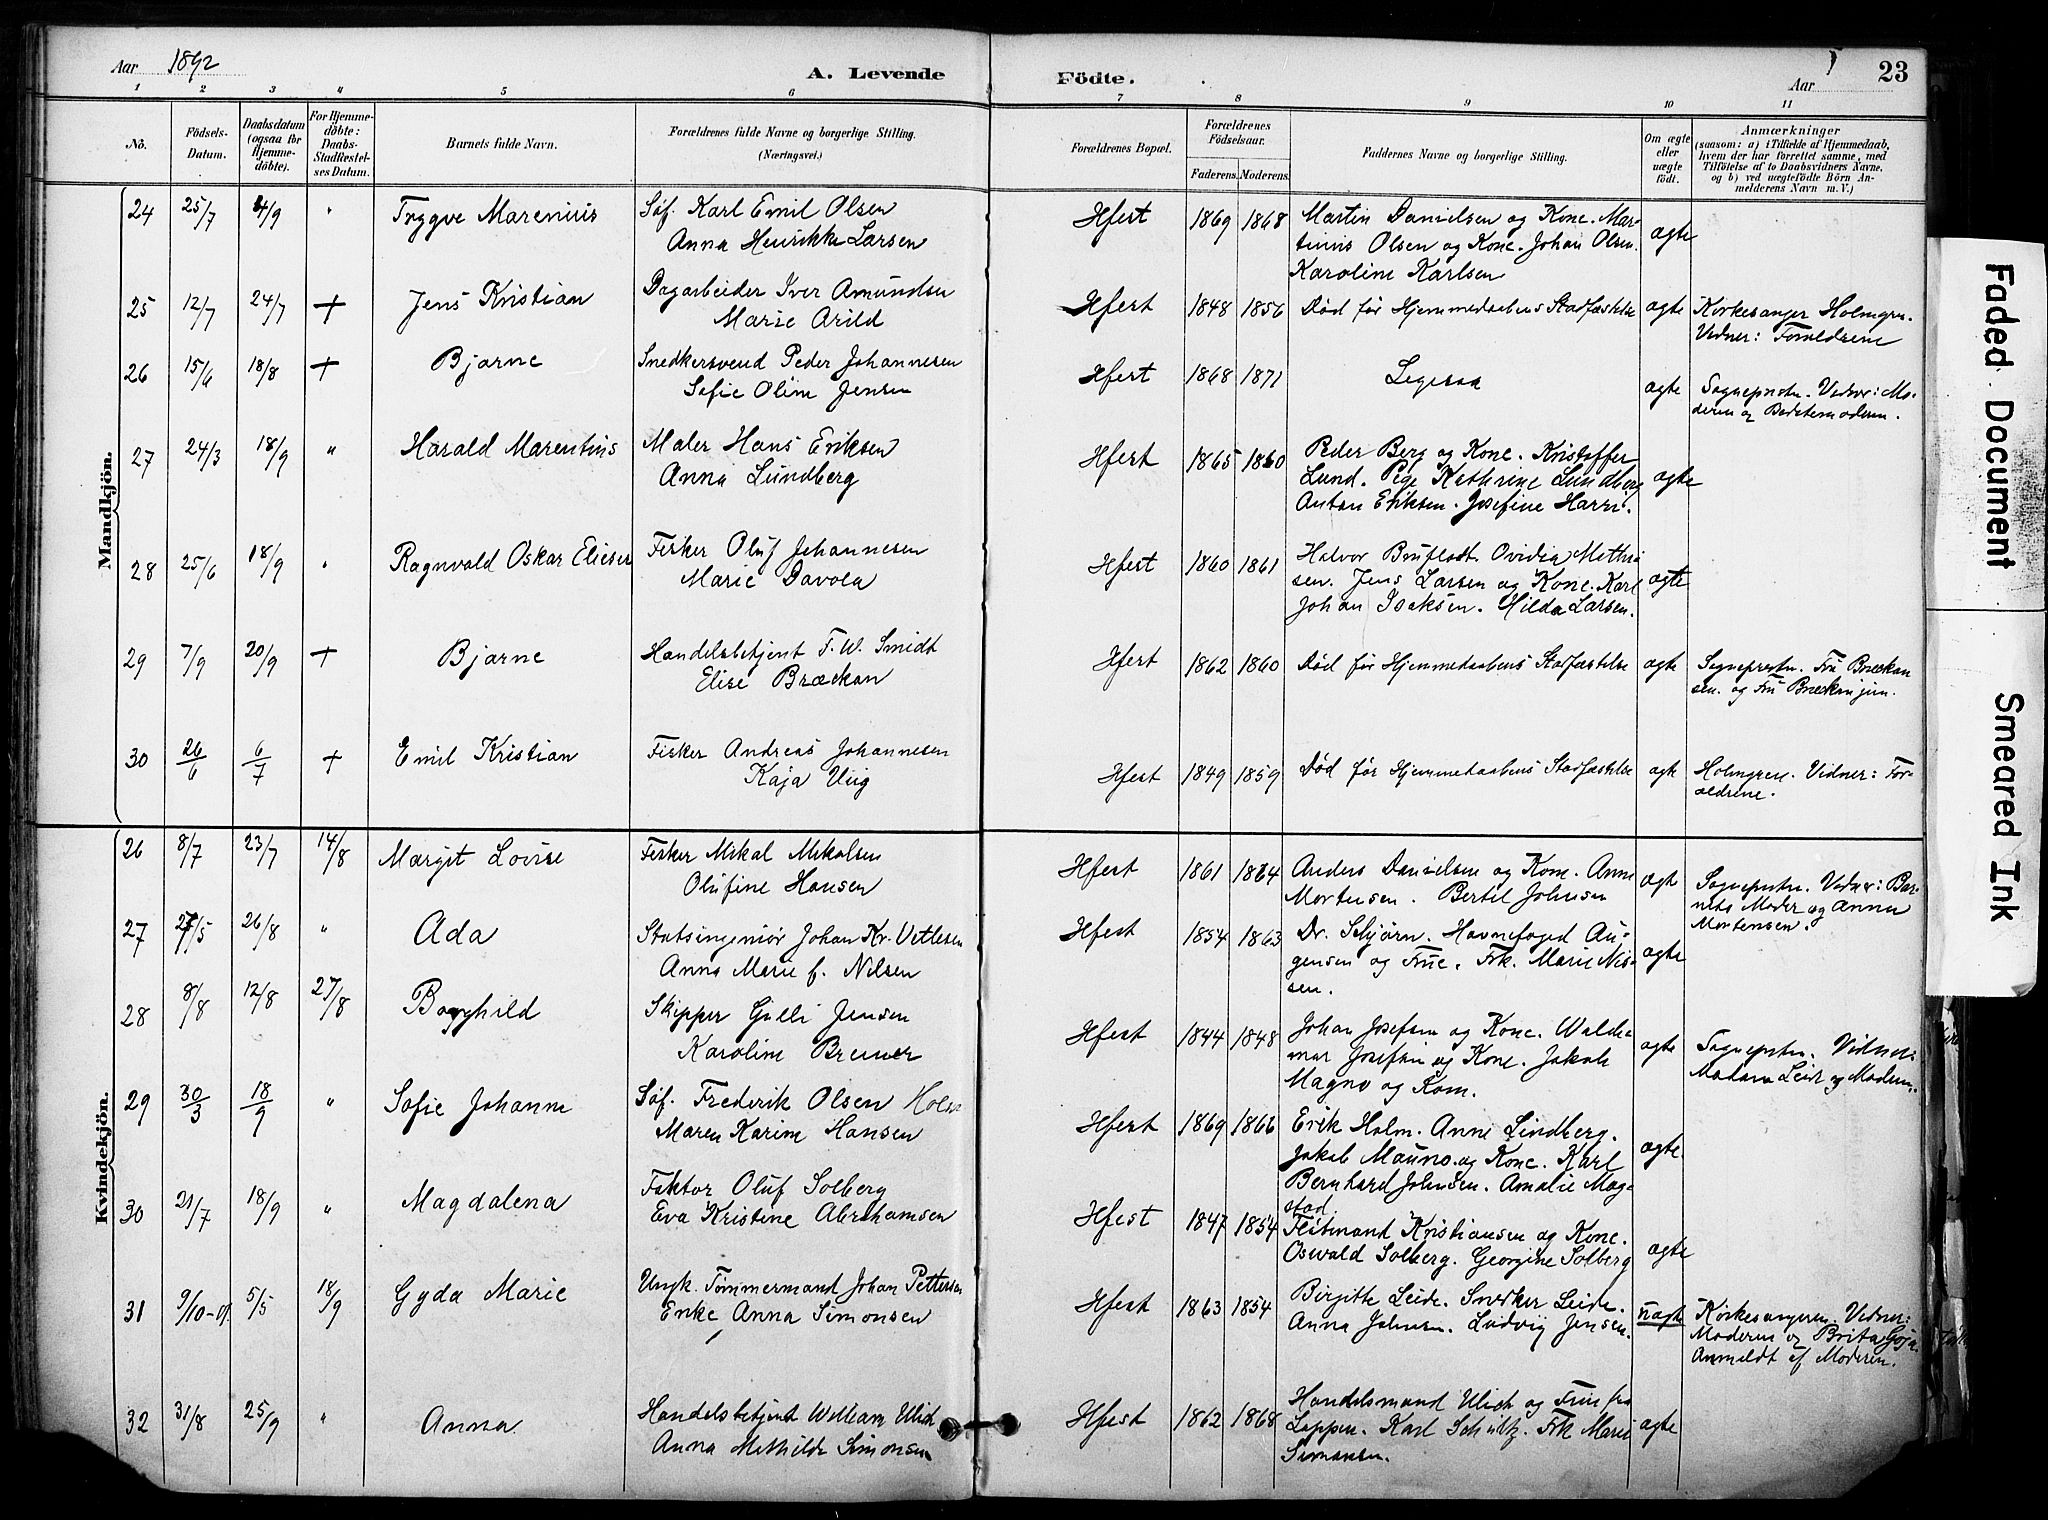 Aar 1892
A. Levende
Födte.
Aar
23
1 2 3 4 5 6 7 8 9 10 11
No.
Födsels-
Datum.
Daabsdatum
(ogsaa for
Hjemme-
döbte).
For Hjemme-
döbte:
Daabs-
Stadfæstel-
ses Datum.
Barnets fulde Navn.
Forældrenes fulde Navne og borgerlige Stilling.
(Næringsvei.)
Forældrenes Bopæl.
Forældrenes
Födselsaar.
Faderens. Moderens.
Faddernes Navne og borgerlige Stilling.
Om ægte
eller
uægte
födt.
Anmærkninger
(saasom: a) i Tilfælde af Hjemmedaab,
hvem der har forrettet samme, med
Tilföielse af to Daabsvidners Navne,
og b) ved uægtefödte Börn An-
melderens Navn m. V.)
Mandkjön.
24 25/7 4/9 " Trygve Marenius
Søf. Karl Emil Olsen
Anna Henrikke Larsen
Hfest 1869 1868
Martin Danielsen og Kone. Mar-
tinus Olsen og Kone. Johan Olsen.
Karoline Karlsen
ægte
25 12/7 24/7 + Jens Kristian
Dagarbeider Iver Amundsen
Marie Arild
Hfest 1848 1856
Død før Hjemmedaabens Stadfæstelse
ægte
Kirkesanger Holmgren.
Vidner: Forældrene
26 15/6 18/8 + Bjarne
Snedkersvend Peder Johannesen
Sofie Oline Jensen
Hfest 1868 1871
Ligesaa
ægte
Sognepresten. Vidner: Mo-
deren og Bedstemoderen.
27 24/3 18/9 " Harald Marentius
Maler Hans Eriksen
Anna Lundberg
Hfest 1865 1860
Peder Berg og Kone. Kristoffer
Lund. Pige Kathrine Lundberg
Anton Eriksen. Josefine Harri.
ægte
28 25/6 18/9 " Ragnvald Oskar Elieser
Fisker Oluf Johannesen
Marie Davola
Hfest 1860 1861
Halvor Bruflodt. Ovidia Mathi-
sen. Jens Larsen og Kone. Karl
Johan Isaksen. Hilda Larsen.
ægte
29 7/9 20/9 + Bjarne
Handelsbetjent F. W. Smidt
Elise Brækan
Hfest 1862 1860
Død før Hjemmedaabens Stadfæstelse
ægte
Sognepresten. Fru Brækan
sen. og Fru Brækan jun.
30 26/6 6/7 + Emil Kristian
Fisker Andreas Johannesen
Kaja
Hfest 1849 1859
Død før Hjemmedaabens Stadfæstelse
ægte
Holmgren. Vidner: For-
ældrene.
Kvindekjön.
26 8/7 23/7 14/8 Margit Lovise
Fisker Mikal Mikalsen
Olufine Hansen
Hfest 1861 1864
Anders Danielsen og Kone. Anne
Mortensen. Bertel Johnsen
ægte
Sognepresten. Vidner: Bar-
nets Moder og Anna
Mortensen.
27 27/5 26/8 " Ada
Statsingeniør Johan Kr. Vitlesen
Anna Marie f. Nilsen
Hfest 1854 1863
Dr. Schjørn. Havnefoged Au-
gensen og Frue. Frk. Marie Nis-
sen.
ægte
28 8/8 12/8 27/8 Borghild
Skipper Gulli Jensen
Karoline Bremer
Hfest 1844 1848
Johan Josefsen og Kone. Walde-
mar Josefsen og Kone. Jakob
Magno og Kone.
ægte
Sognepresten. Vidner:
Madam Leide og Moderen.
29 30/3 18/9 " Sofie Johanne
Søf. Frederik Olsen Holm
Maren Karine Hansen
Hfest 1869 1866
Erik Holm. Anne Lindberg.
Jakob Mauno og Kone. Karl
Bernhard Johnsen. Amalie Mag-
stad.
ægte.
30 21/7 18/9 " Magdalena
Faktor Oluf Solberg
Eva Kristine Abrahamsen
Hfest 1847 1854
Kristiansen og Kone.
Oswald Solberg. Georgine Solberg
ægte
31 9/10-91 5/5 18/9 Gyda Marie
Ungk. Tømmermand Johan Pettersen
Enke Anna Simonsen
Hfest 1863 1854
Birgitte Leide. Snedker Leide.
Anna Johnsen. Ludvig Jensen.
uægte
Kirkesangeren. Vidner:
Moderen og Brita Goja.
Anmeldt af Moderen.
32 31/8 25/9 " Anna
Handelsbetjent William Ulich
Anna Mathilde Simonsen
Hfest 1862 1868
Handelsmand Ulich og Frue fra
Loppen. Karl Schultz. Frk Marie
Simonsen.
ægte
Faded Document
Smeared Ink